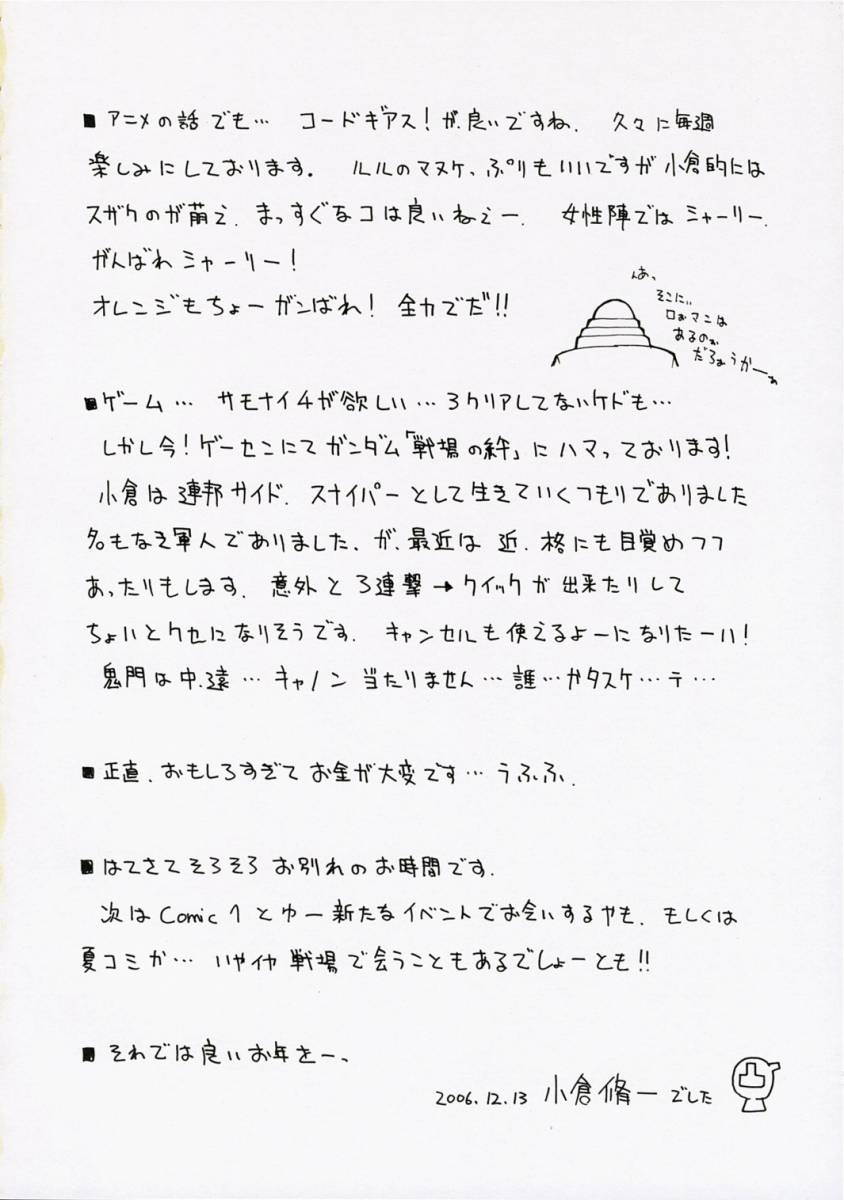 ■アニメの話でも… コードギアス!が、良いですね、 久々に毎週
楽しみにしております。 ルルのマヌケ、ぷりもいいですが小倉的には
スザクのが萌え、まっすぐなコは良いねぇー、 女性陣ではシャーリー、
がんばれシャーリー!
オレンジもちょーガンばれ! 全力でだ!!
んあ、
そこにぃ
ロぉマンは
あるのぉ
だろぉうかーぁ
■ゲーム… サモナイ4が欲しい…3クリアしてないケドも…
しかし今!ゲーセンにてガンダム「戦場の絆」にハマっております!
小倉は連邦サイド、スナイパーとして生きていくつもりでありました
名もなき軍人でありました、が、最近は近、格にも目覚めつつ
あったりもします、意外と3連撃→クイックが出来たりして
ちょいとクセになりそうです、 キャンセルも使えるよーになりたーい!
鬼門は中、遠…キャノン当たりません…誰…かタスケ…テ…
■正直、おもしろすぎてお金が大変です…うふふ、
■はてさてそろそろお別れのお時間です、
次はComic1とゆー新たなイベントでお会いするやも、もしくは
夏コミか… いやイヤ戦場で会うこともあるでしょーとも!!
■それでは良いお年をー、
2006.12.13 小倉脩一でした
凸